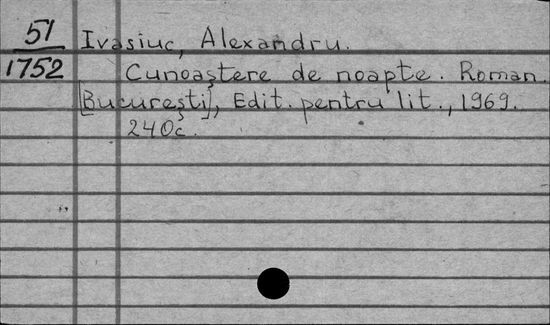 51 Ivasiuc, Alexandru.
1752 Cunoaştere de noapte. Roman.
[Bucureşti], Edit. pentru lit., 1969.
240c.